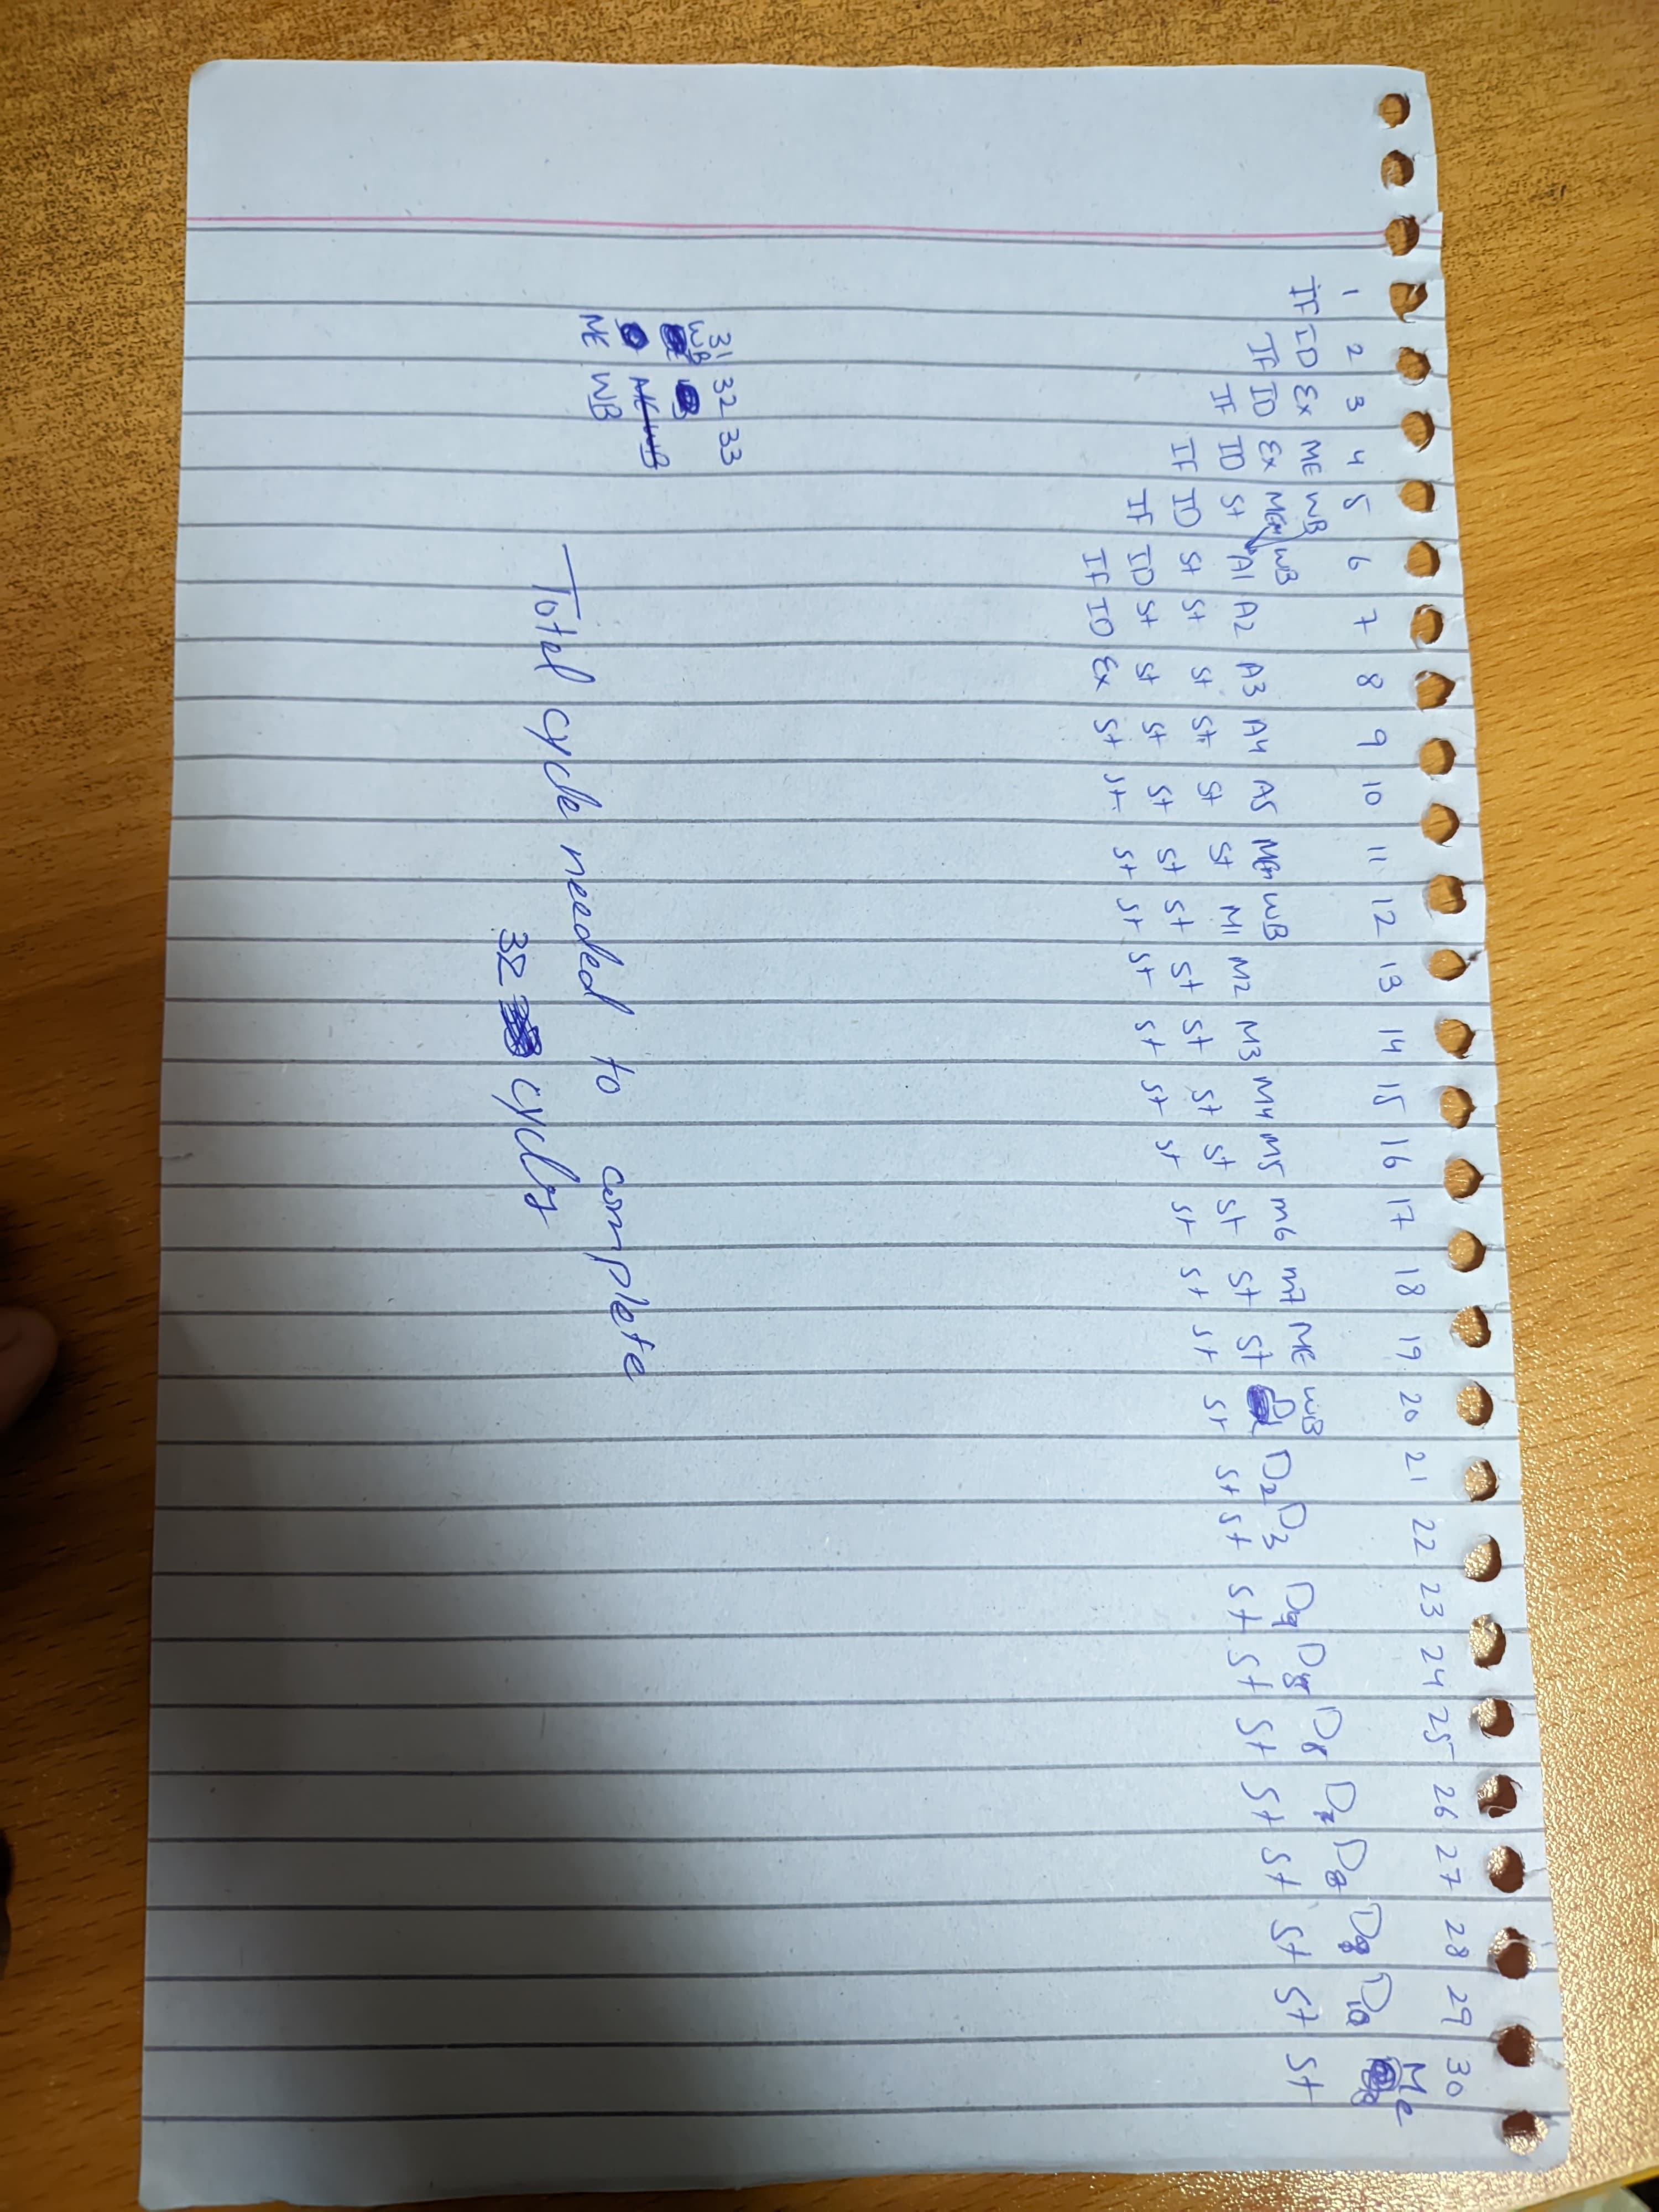 1 2 3 4 5 6 7 8 9 10 11 12 13 14 15 16 17 18 19 20 21 22 23 24 25 26 27 28 29 30
IF ID Ex ME WB
IF ID Ex MEM WB
IF ID St A1 A2 A3 A4 A5 MEM WB
IF ID St St St St St St M1 M2 M3 M4 M5 M6 M7 ME WB
IF ID St St St St St St St St St St St St St D1 D2 D3 D4 D5 D6 D7 D8 D9 D10 Me
IF ID Ex St St St St St St St St St St St St St St St St St St St St St St
31 32 33
WB
ME WB
Total cycle needed to complete
32 cycles